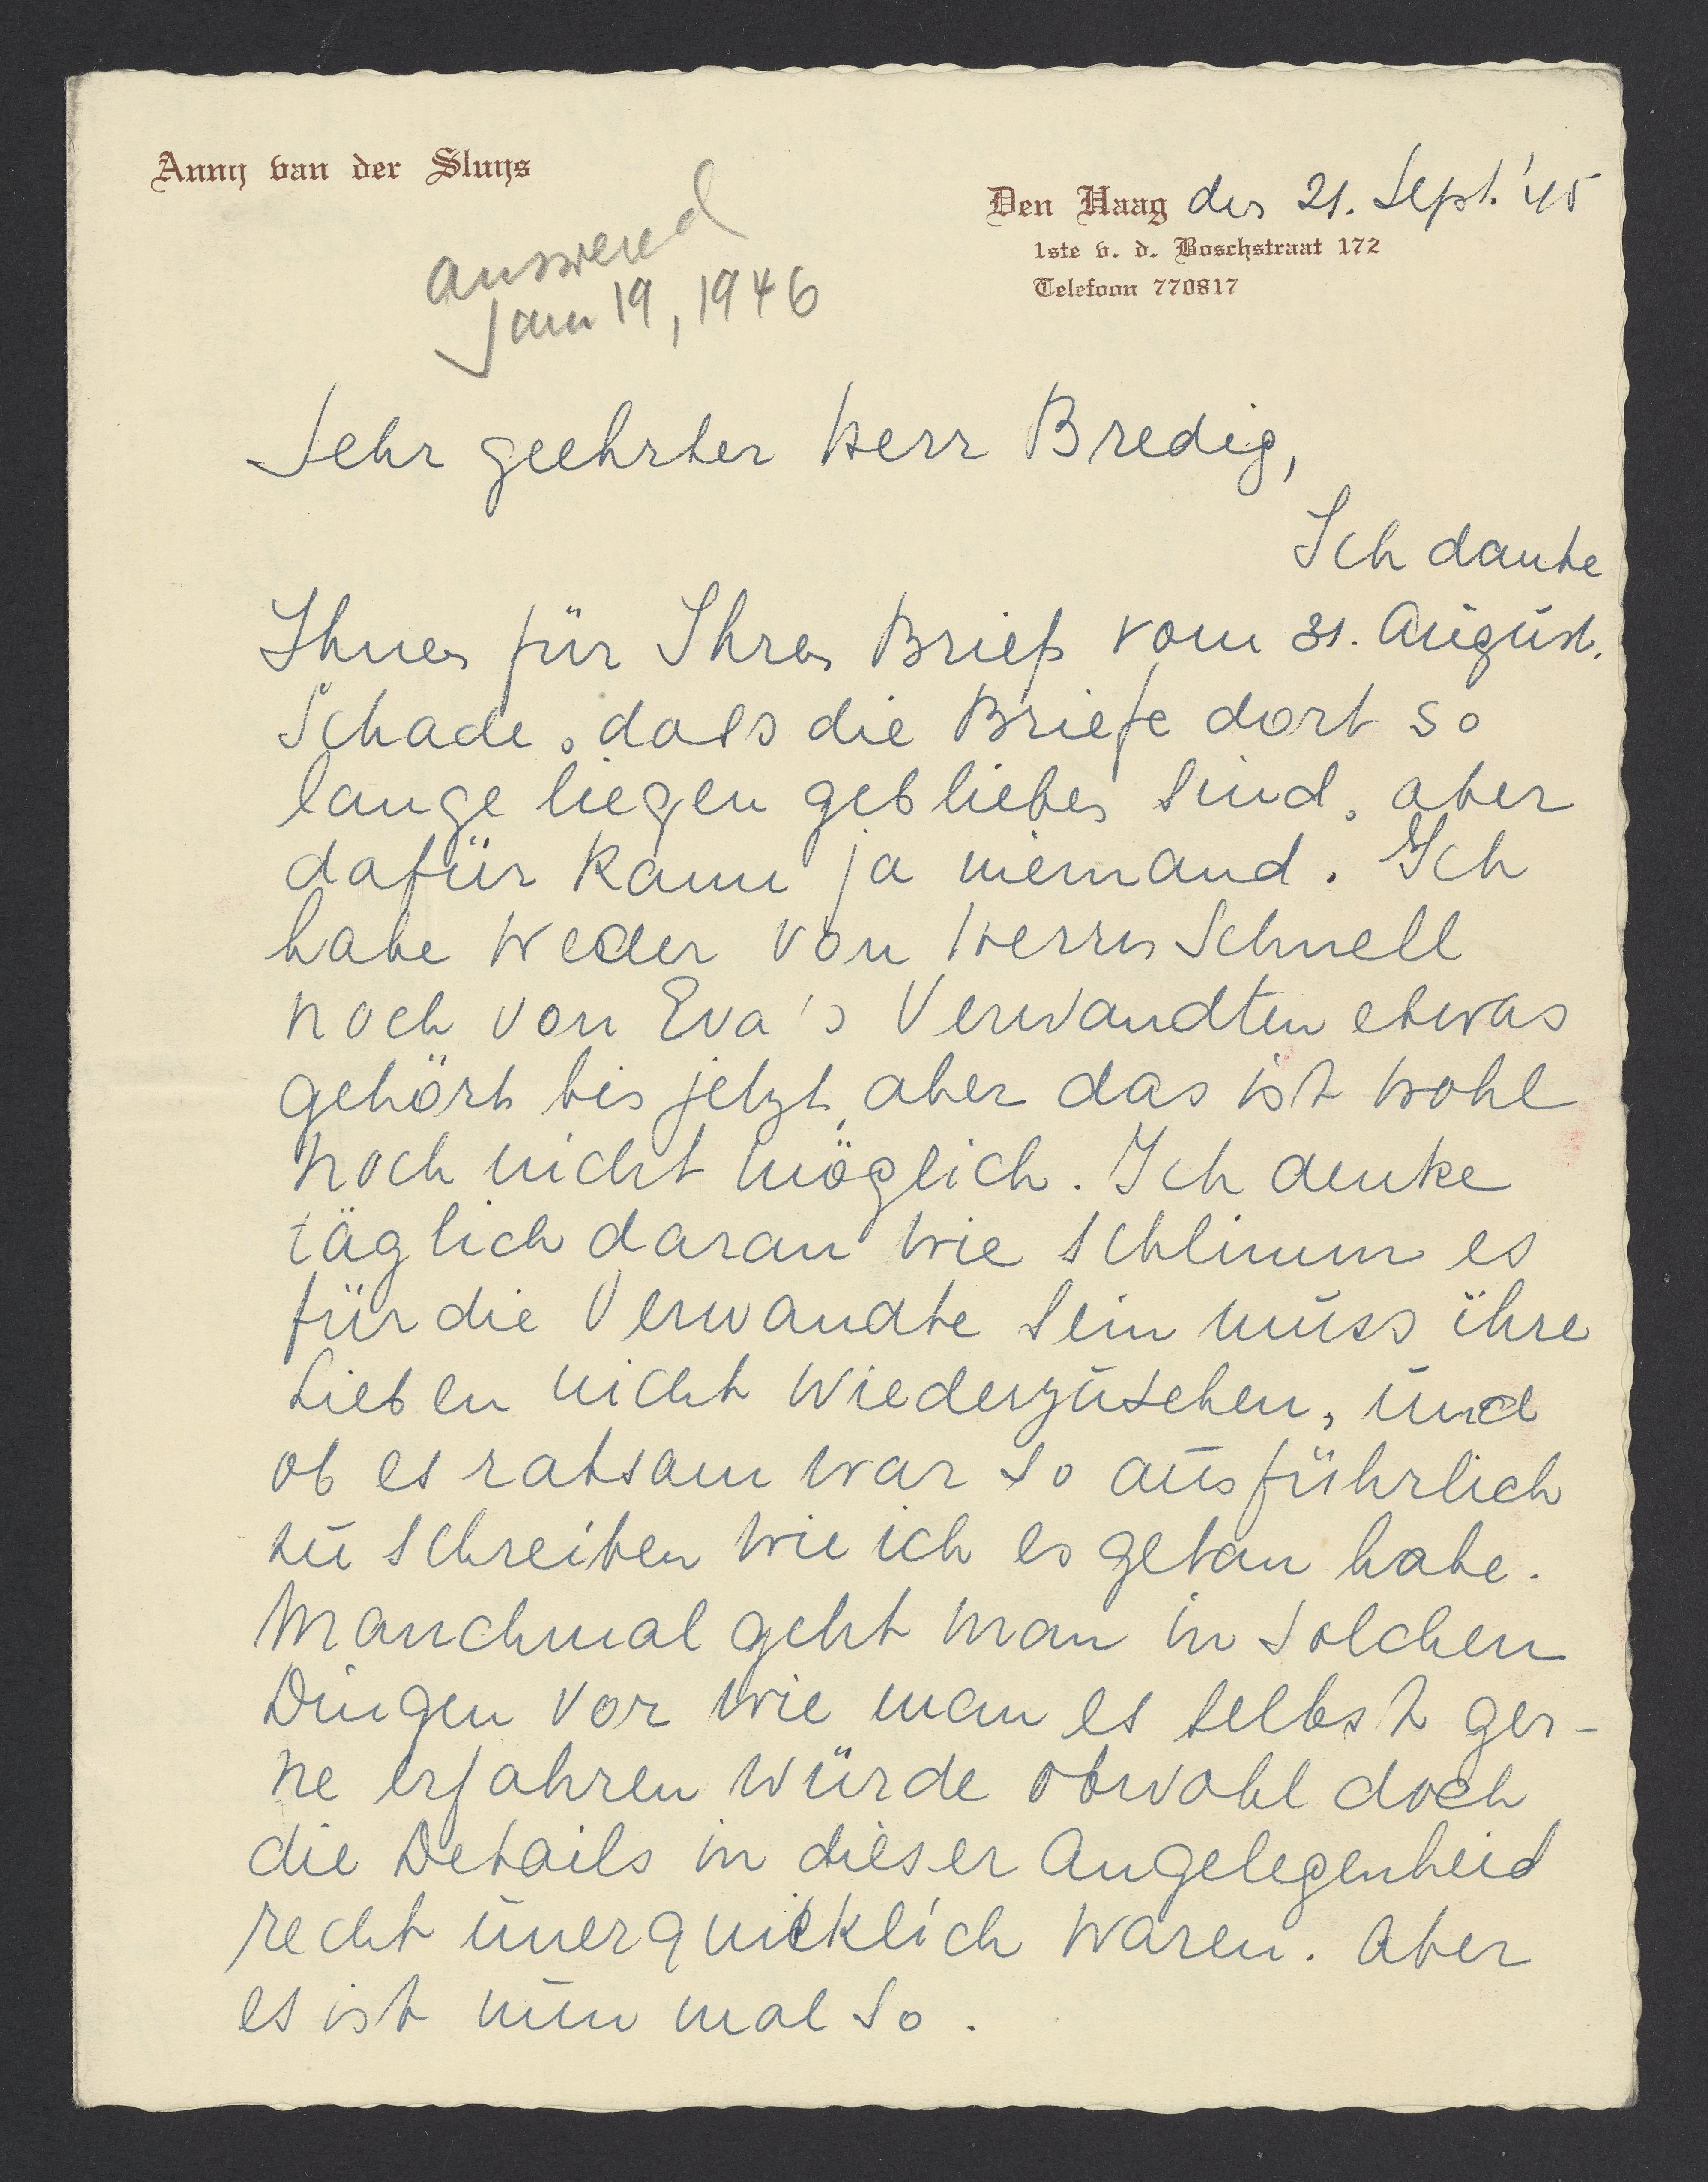 Anny van der Sluys
Den Haag den 21. Sept. '45
1ste v. d. Boschstraat 172
Telefoon 770817
answered
Jan 19, 1946
Sehr geehrter Herr Bredig,
Ich danke
Ihnen für Ihren Brief vom 31. August.
Schade, dass die Briefe dort so
lange liegen geblieben sind, aber
dafür kann ja niemand. Ich
habe weder von Herrn Schnell
noch von Eva's Verwandten etwas
gehört bis jetzt, aber das ist wohl
noch nicht möglich. Ich denke
täglich daran wie schlimm es
für die Verwandte sein muss ihre
Lieben nicht wiederzusehen, und
ob es ratsam war so ausführlich
zu schreiben wie ich es getan habe.
Manchmal geht man in solchen
Dingen vor wie man es selbst ger-
ne erfahren würde obwohl doch
die Details in dieser Angelegenheid
recht unerquicklich waren. Aber
es ist nun mal so.